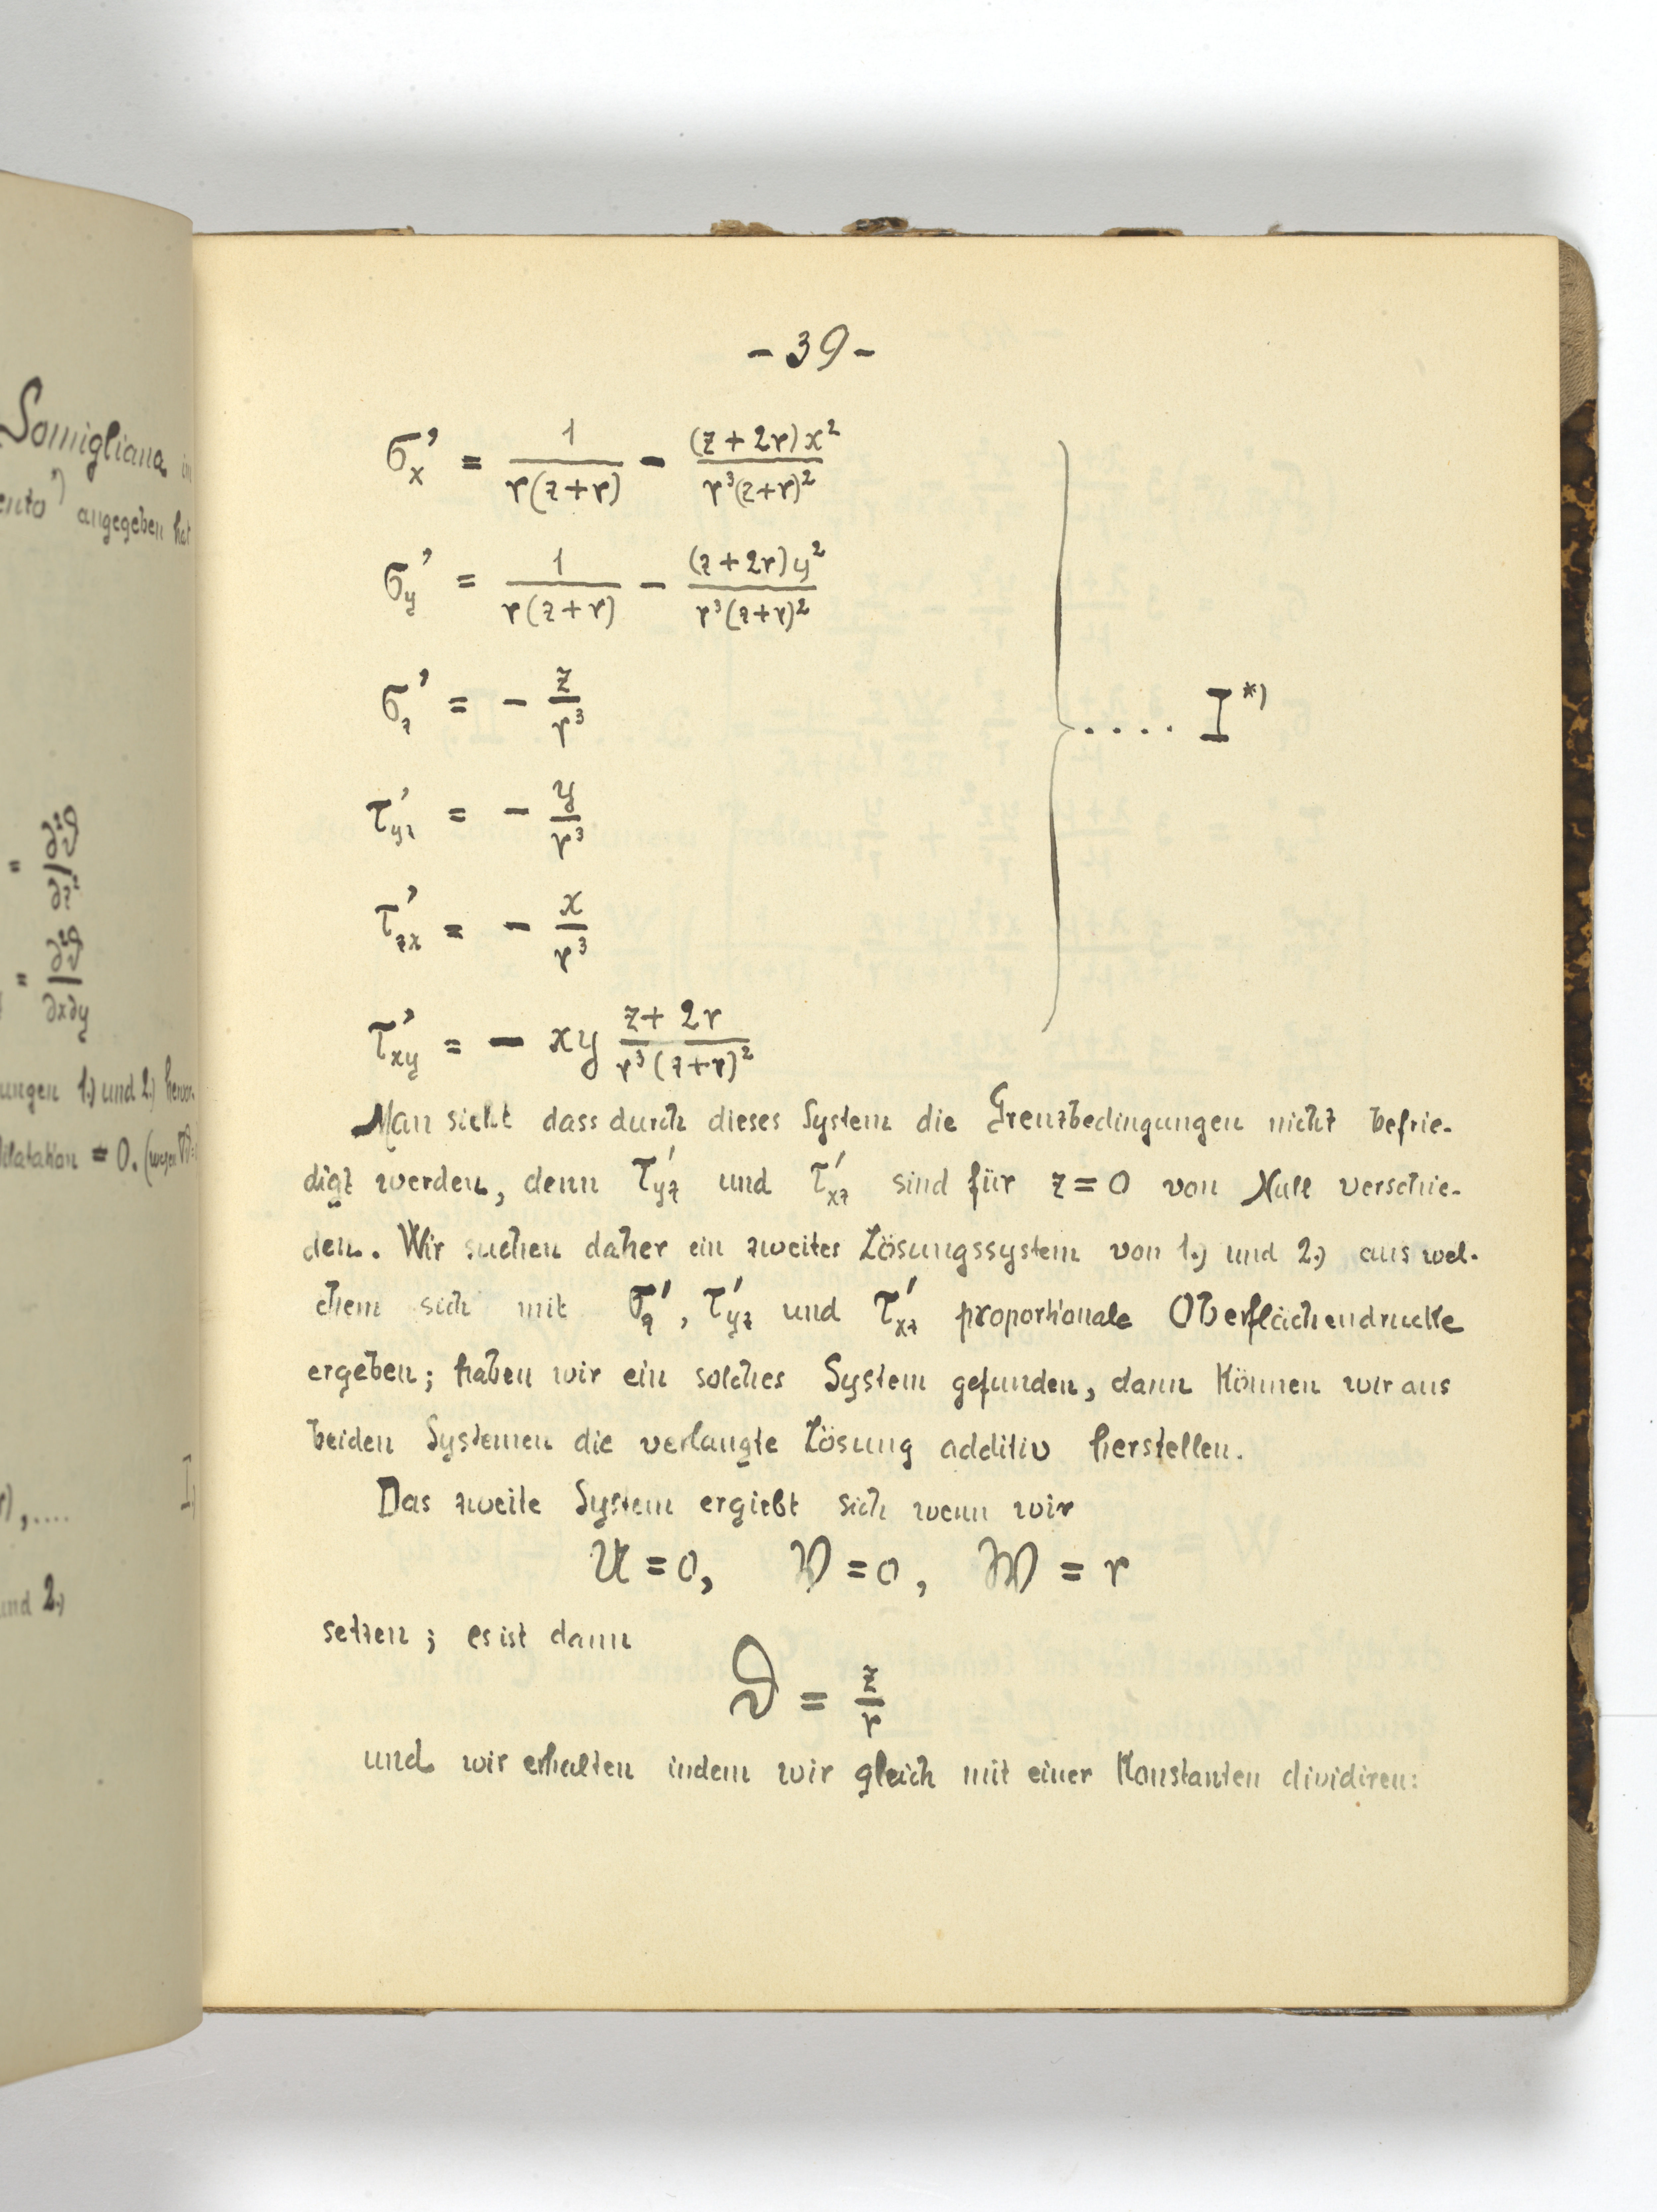 Somigliana in
ento*) angegeben hat
= ∂²ϑ/∂z²
= ∂²ϑ/∂x∂y
ungen 1.) und 2.) hervor-
dilatation = 0. (wegen
r), .... I,
und 2.)
- 39 -
σₓ' = 1/r(z+r) - (z+2r)x²/r³(z+r)²
σ_y' = 1/r(z+r) - (z+2r)y²/r³(z+r)²
σ_z' = - z/r³ .... I*)
τ_yz' = - y/r³
τ_zx' = - x/r³
τ_xy' = - xy z+2r/r³(z+r)²
Man sieht dass durch dieses System die Grenzbedingungen nicht befrie-
digt werden, denn τ_yz' und τ_xz' sind für z=0 von Null verschie-
den. Wir suchen daher ein zweites Lösungssystem von 1.) und 2.) aus wel-
chem sich mit σ_z', τ_yz' und τ_xz' proportionale Oberflächendrucke
ergeben; haben wir ein solches System gefunden, dann können wir aus
beiden Systemen die verlangte Lösung additiv herstellen.
Das zweite System ergiebt sich wenn wir
U = 0, V = 0, W = r
setzen; es ist dann
ϑ = z/r
und wir erhalten indem wir gleich mit einer Konstanten dividiren: